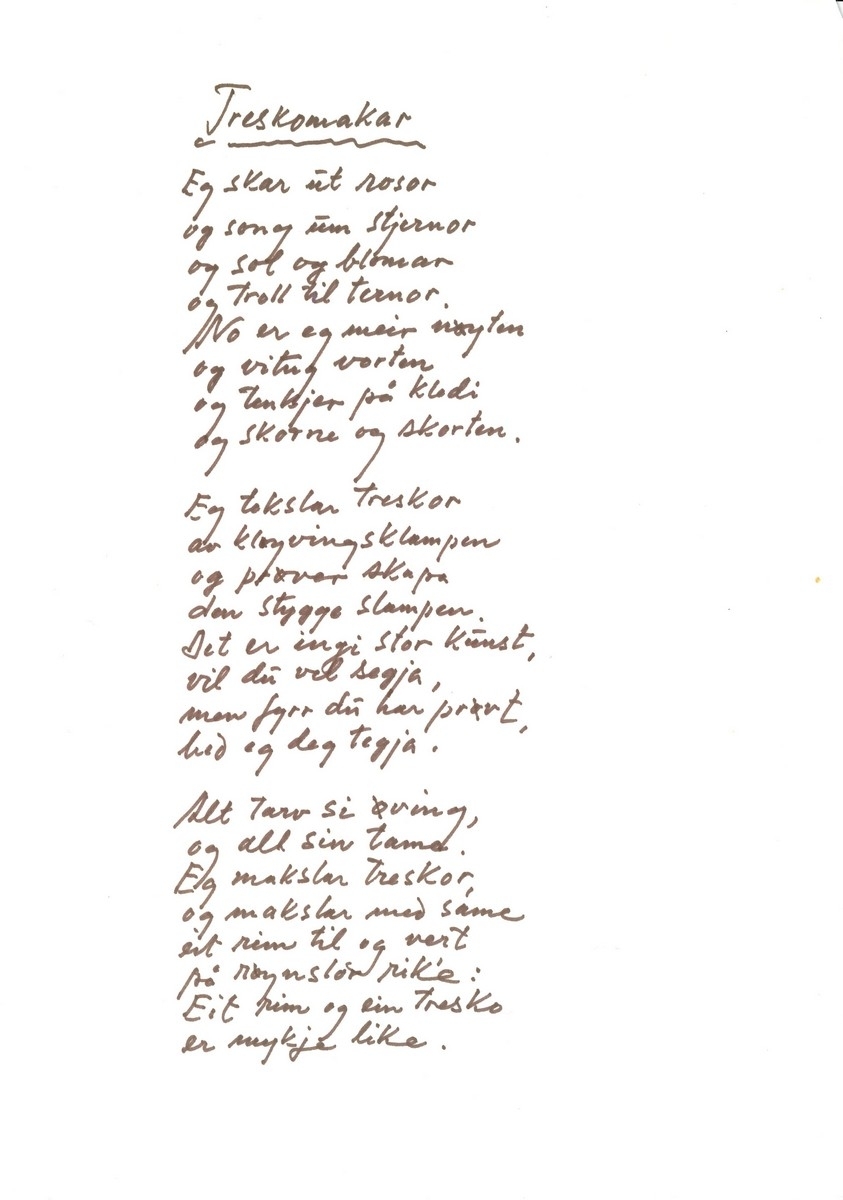 Treskomakar
Eg skar ut rosor
og song um stjernor
og sol og blomar
og troll til ternor.
No er eg meir nøyten
og vitug vorten
og tenkjer på klodi
og skorne og skorten.
Eg tekslar treskor
av kløyvingsklampen
og prøver skapa
den stygge slampen.
Det er ingi stor kunst,
vil du vel segja,
men fyrr du har prøvt,
bed eg deg tegja.
Alt tarv si øving,
og all sin tame.
Eg makslar treskor,
og makslar med same
eit rim til og vert
på røynslor rike:
Eit rim og ein tresko
er mykje like.